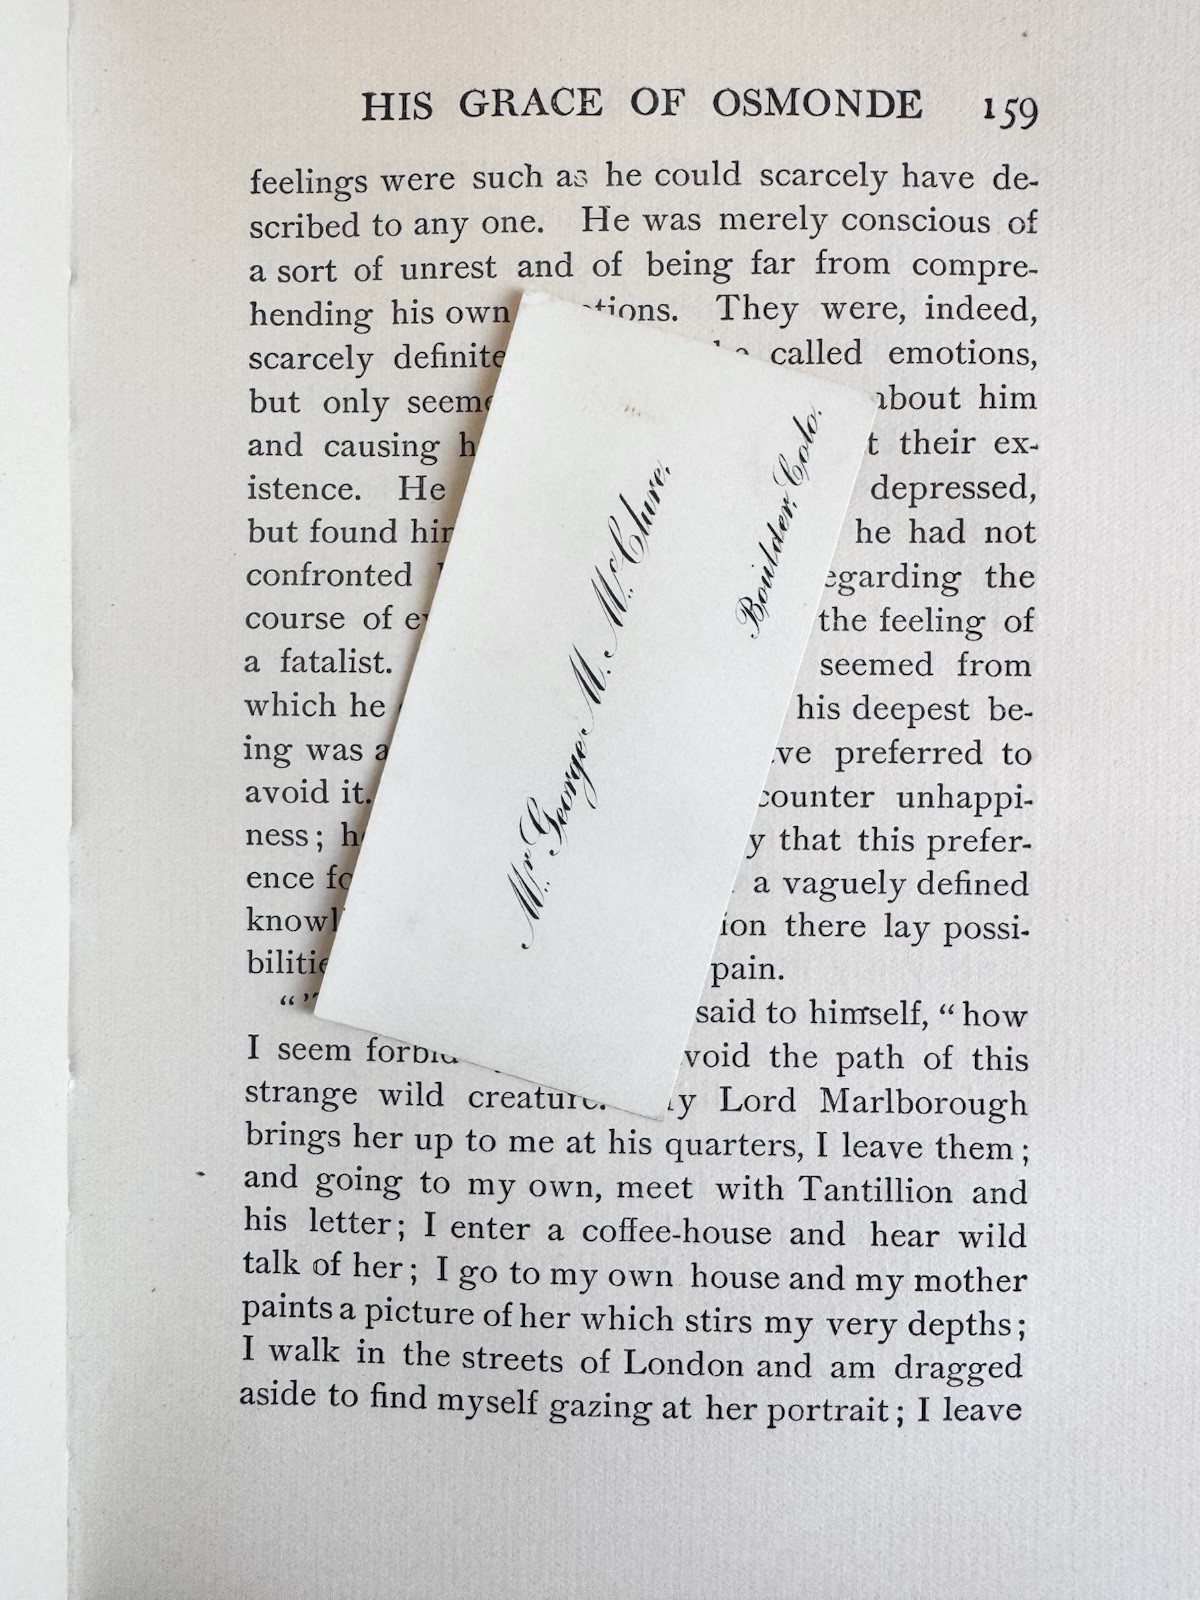 HIS GRACE OF OSMONDE 159
feelings were such as he could scarcely have de-
scribed to any one. He was merely conscious of
a sort of unrest and of being far from compre-
hending his own tions. They were, indeed,
scarcely definite called emotions,
but only seeme about him
and causing h t their ex-
istence. He depressed,
but found him he had not
confronted egarding the
course of ev the feeling of
a fatalist. seemed from
which he his deepest be-
ing was a ve preferred to
avoid it. counter unhappi-
ness; he y that this prefer-
ence fo a vaguely defined
knowl ion there lay possi-
bilitie pain.
said to himself, “how
I seem forbid void the path of this
strange wild creature. y Lord Marlborough
brings her up to me at his quarters, I leave them;
and going to my own, meet with Tantillion and
his letter; I enter a coffee-house and hear wild
talk of her; I go to my own house and my mother
paints a picture of her which stirs my very depths;
I walk in the streets of London and am dragged
aside to find myself gazing at her portrait; I leave
Mr. George M. McClure,
Boulder, Colo.